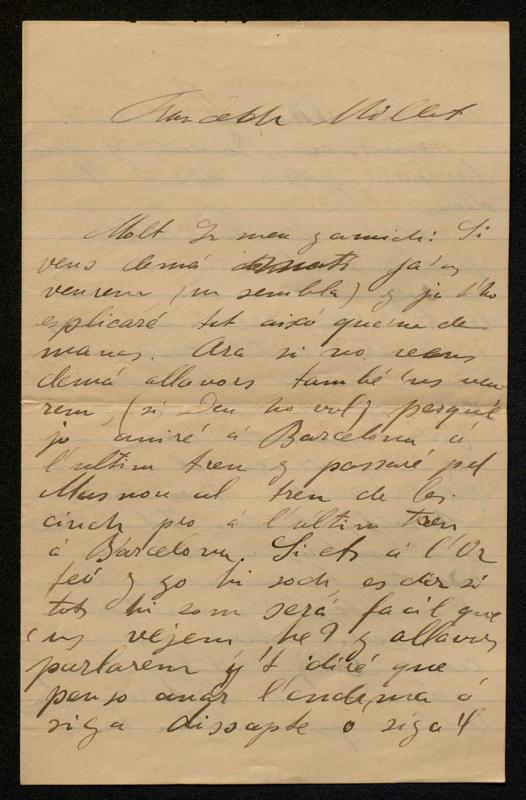 Millet
Molt Sr meu y amich: Si
vens demá já 'ns
veurem, (m sembla) y ja t'ho
esplicaré tot aixó que'm de
manas. Ara si no vens
demá allavors també 'ns veu
rem, (si Deu ho vol) perqué
jo aniré á Barcelona á
l'ultim tren y passaré pel
Masnou al tren de les
cinch pro á l'últim tren
á Barcelona. Si ets á l'Or
feó y jo hi soch, es dir si
tots hi som será facil que
'ns vejem he? y allavors
parlarem y't diré que
penso anar l'endemá ó
siga dissapte o siga'l